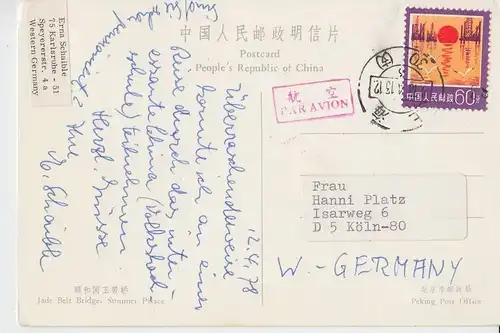 Erna Schaible
75 Karlsruhe - 51
Speyererstr. 4 a
Western Germany
中国人民邮政明信片
Postcard
People's Republic of China
航空
PAR AVION
中国人民邮政 60分
12.4.78
Überraschenderweise
konnte ich an einer
Reise durch das inter-
essante China (Volkshoch-
schule) teilnehmen
Herzl. Grüsse
Ihre
E. Schaible
Frau
Hanni Platz
Isarweg 6
D 5 Köln-80
W.- GERMANY
颐和园玉带桥
Jade Belt Bridge, Summer Palace
北京市邮政局
Peking Post Office